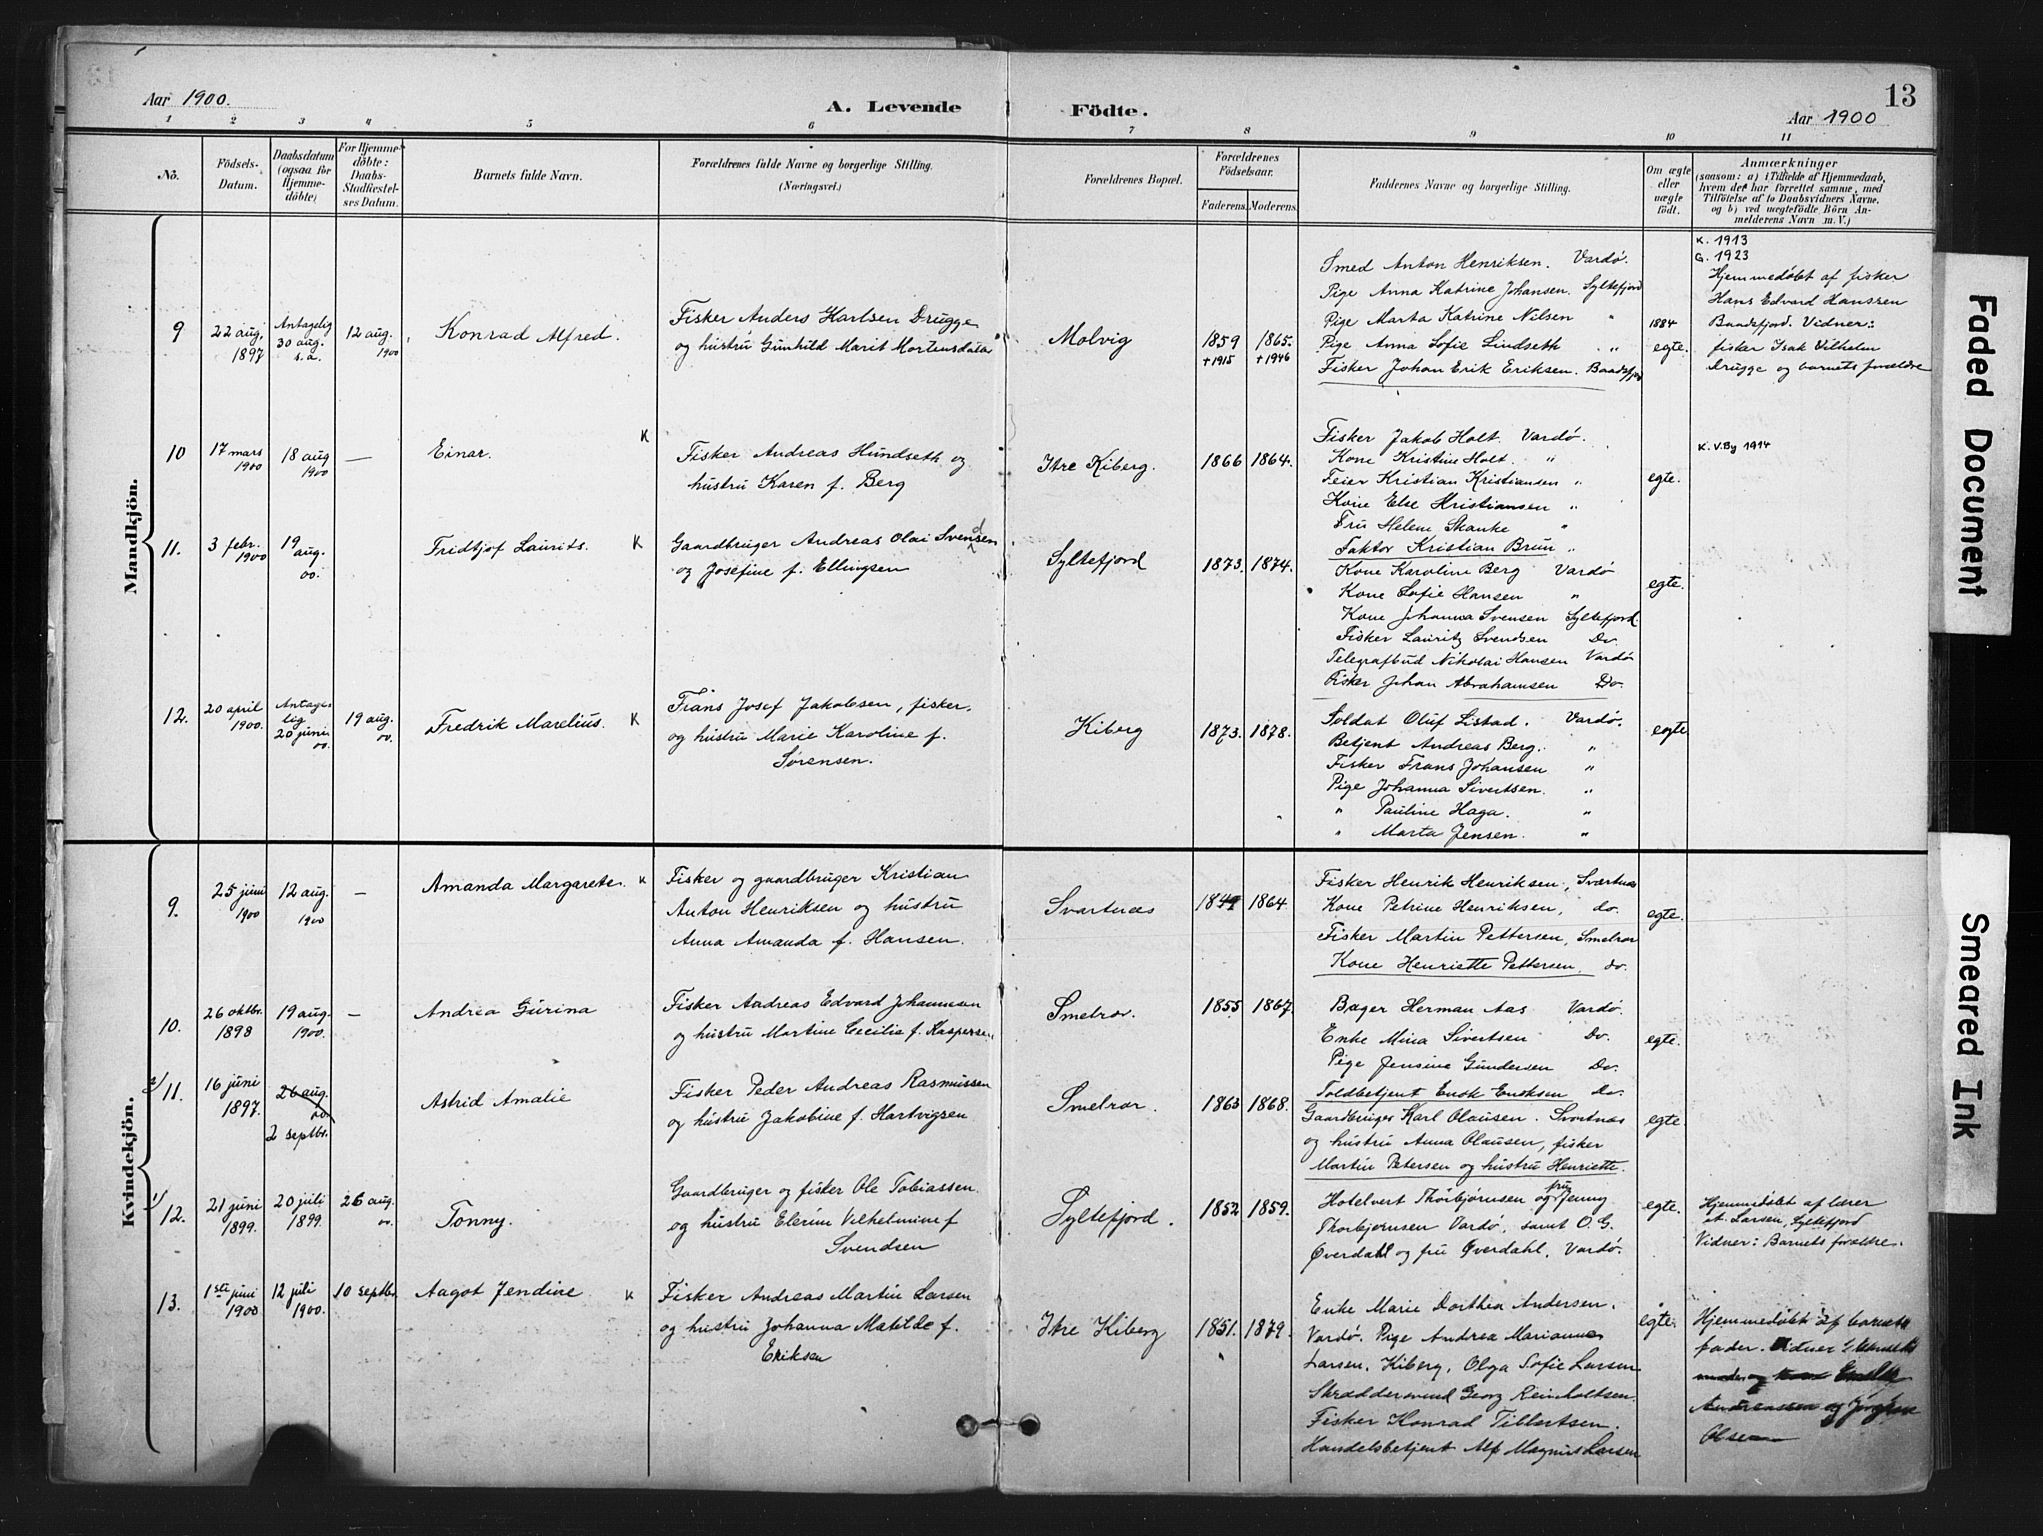 Aar 1900.
A. Levende Födte.
13
Aar 1900
1 2 3 4 5 6 7 8 9 10 11
No.
Födsels-Datum.
Daabsdatum (ogsaa for Hjemme-döbte)
For Hjemme-döbte: Daabs-Stadfæstel-ses Datum.
Barnets fulde Navn.
Forældrenes fulde Navne og borgerlige Stilling.
(Næringsvei.)
Forældrenes Bopæl.
Forældrenes Födselsaar.
Faderens. Moderens.
Faddernes Navne og borgerlige Stilling.
Om ægte eller uægte födt.
Anmærkninger
(saasom: a) i Tilfælde af Hjemmedaab,
hvem det har forrettet samme, med
Tilföielse af to Daabsvidners Navne.
og b) ved uægtefödte Börn An-
melderens Navn m. V.)
Mandkjön.
9
22 aug. 1897
Antagelig 30 aug. s.a.
12 aug. 1900
Konrad Alfred.
Fisker Anders Karlsen Drugge
og hustru Gunhild Marit Mortensdatter
Molvig
1859 +1915
1865. +1946
Smed Anton Henriksen. Vardø.
Pige Anna Katrine Johansen. Syltefjord
Pige Marta Katrine Nilsen "
Pige Anna Sofie Lindseth "
Fisker Johan Erik Eriksen. Baadsfjord
1884
egte.
K. 1913
G. 1923
Hjemmedøbt af fisker
Hans Edvard Hanssen
Baadsfjord. Vidner:
fisker Isak Vilhelm
Drugge og barnets forældre
10
17 mars 1900
18 aug 1900
—
Einar. K
Fisker Andreas Hundseth og
hustru Karen f. Berg
Itre Kiberg.
1866 1864.
Fisker Jakob Holt. Vardø.
Kone Kristine Holt. "
Feier Kristian Kristiansen "
Kone Else Kristiansen "
Fru Helene Skanke "
Faktor Kristian Brun "
egte.
K. V.By 1914
11.
3 febr. 1900
19 aug. 00.
Fridtjof Laurits. K
Gaardbruger Andreas Olai Svendsen
og Josefine f. Ellingsen
Syltefjord
1873. 1874.
Kone Karoline Berg Vardø
Kone Sofie Hansen "
Kone Johanna Svensen Syltefjord.
Fisker Lauritz Svendsen Do.
Telegrafbud Nikolai Hansen Vardø
Fisker Johan Abrahamsen Do.
egte.
12.
20 april 1900.
Antage-lig 20 juni 00.
19 aug. 00.
Fredrik Marelius. K
Frans Josef Jakobsen, fisker.
og hustru Marie Karoline f.
Sørensen.
Kiberg
1873. 1878.
Soldat Oluf Listad. Vardø.
Betjent Andreas Berg. "
Fisker Frans Johansen "
Pige Johanna Sivertsen. "
" Pauline Haga. "
" Marta Jensen. "
egte
Kvindekjön.
9.
25 juni 1900
12 aug. 1900
—
Amanda Margarete. K
Fisker og gaardbruger Kristian
Anton Henriksen og hustru
Anna Amanda f. Hansen.
Svartnæs
1864.
Fisker Henrik Henriksen, Svartnæs
Kone Petrine Henriksen, do.
Fisker Martin Pettersen, Smelror
Kone Henriette Pettersen, do.
egte.
10.
26 oktbr. 1898
19 aug. 1900.
—
Andrea Gurina
Fisker Andreas Edvard Johannesen
og hustru Martine Cecilia f. Kaspersen
Smelror.
1855 1867.
Bager Herman Aas Vardø.
Enke Mina Sivertsen Do.
Pige Jensine Gundersen Do.
Toldbetjent Enok Enoksen Do.
egte.
2/ 11.
16 juni 1897.
26 aug. 00.
2 septbr.
Astrid Amalie
Fisker Peder Andreas Rasmussen
og hustru Jakobine f. Hartvigsen
Smelror.
1863 1868.
Gaardbruger Karl Olausen. Svartnæs
og hustru Anna Olausen, fisker
Martin Petersen og hustru Henriette.
egte.
1/ 12.
21 juni 1899.
20 juli 1899.
26 aug. 00.
Tonny.
Gaardbruger og fisker Ole Tobiassen.
og hustru Elerine Vilhelmine f
Svendsen
Syltefjord.
1852 1859.
Hotelvert Thorbjørnsen og fru Jenny
Thorbjørnsen Vardø, samt O. G.
Øverdahl og fru Øverdahl. Vardø.
egte.
Hjemmedøbt af lærer
Larsen, Syltefjord
Vidner: Barnets forældre.
13.
1ste juni 1900
12 juli 1900.
10 septbr.
Aagot Jendine K
Fisker Andreas Martin Larsen
og hustru Johanna Matilde f.
Eriksen
Itre Kiberg
1851. 1879.
Enke Marie Dorthea Andersen.
Vardø. Pige Andrea Marianne
Larsen. Kiberg, Olga Sofie Larsen
Skræddersvend Georg Reinholtsen.
Fisker Konrad Tilbertsen.
Handelsbetjent Alf Magnus Larsen
egte.
Hjemmedøbt af barnets
fader. Vidner
moder og
Andreassen og
Olsen
Faded Document
Smeared Ink